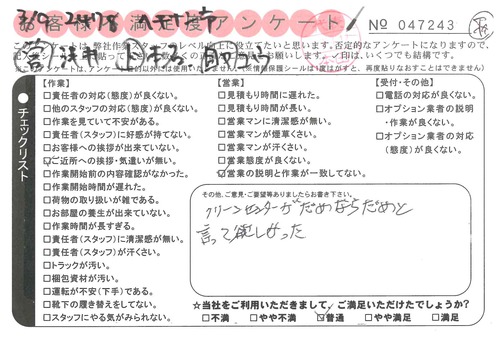 お客様満足度アンケート
№ 047243
チェックリスト
【作業】
□責任者の対応(態度)が良くない。
□他のスタッフの対応(態度)が良くない。
□作業を見ていて不安がある。
□責任者(スタッフ)に好感が持てない。
□お客様への挨拶が出来ていない。
□ご近所への挨拶・気遣いが無い。
□作業開始前の内容確認がなかった。
□作業開始時間が遅れた。
□荷物の取り扱いが雑である。
□お部屋の養生が出来ていない。
□作業時間が長すぎる。
□責任者(スタッフ)に清潔感が無い。
□責任者(スタッフ)が汗くさい。
□トラックが汚い。
□梱包資材が汚い。
□運転が不安(下手)である。
□靴下の履き替えをしてない。
□スタッフにやる気がみられない。
【営業】
□見積もり時間に遅れた。
□見積もり時間が長い。
□営業マンに清潔感が無い。
□営業マンが煙草くさい。
□営業マンが汗くさい。
□営業態度が良くない。
□営業の説明と作業が一致してない。
【受付・その他】
□電話の対応が良くない。
□オプション業者の説明
・作業が良くない。
□オプション業者の対応
(態度)が良くない。
その他、ご意見・ご要望等ありましたらお書き下さい。
クリーンセンターがだめならだめと
言って欲しかった
☆当社をご利用いただきまして、ご満足いただけたでしょうか？
□不満 □やや不満 □普通 □やや満足 □満足